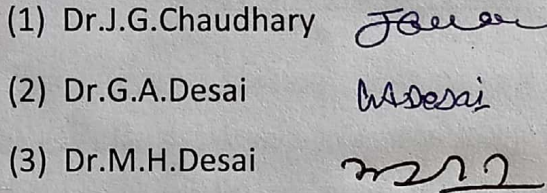 (1) Dr.J.G.Chaudhary
(2) Dr.G.A.Desai GADesai
(3) Dr.M.H.Desai